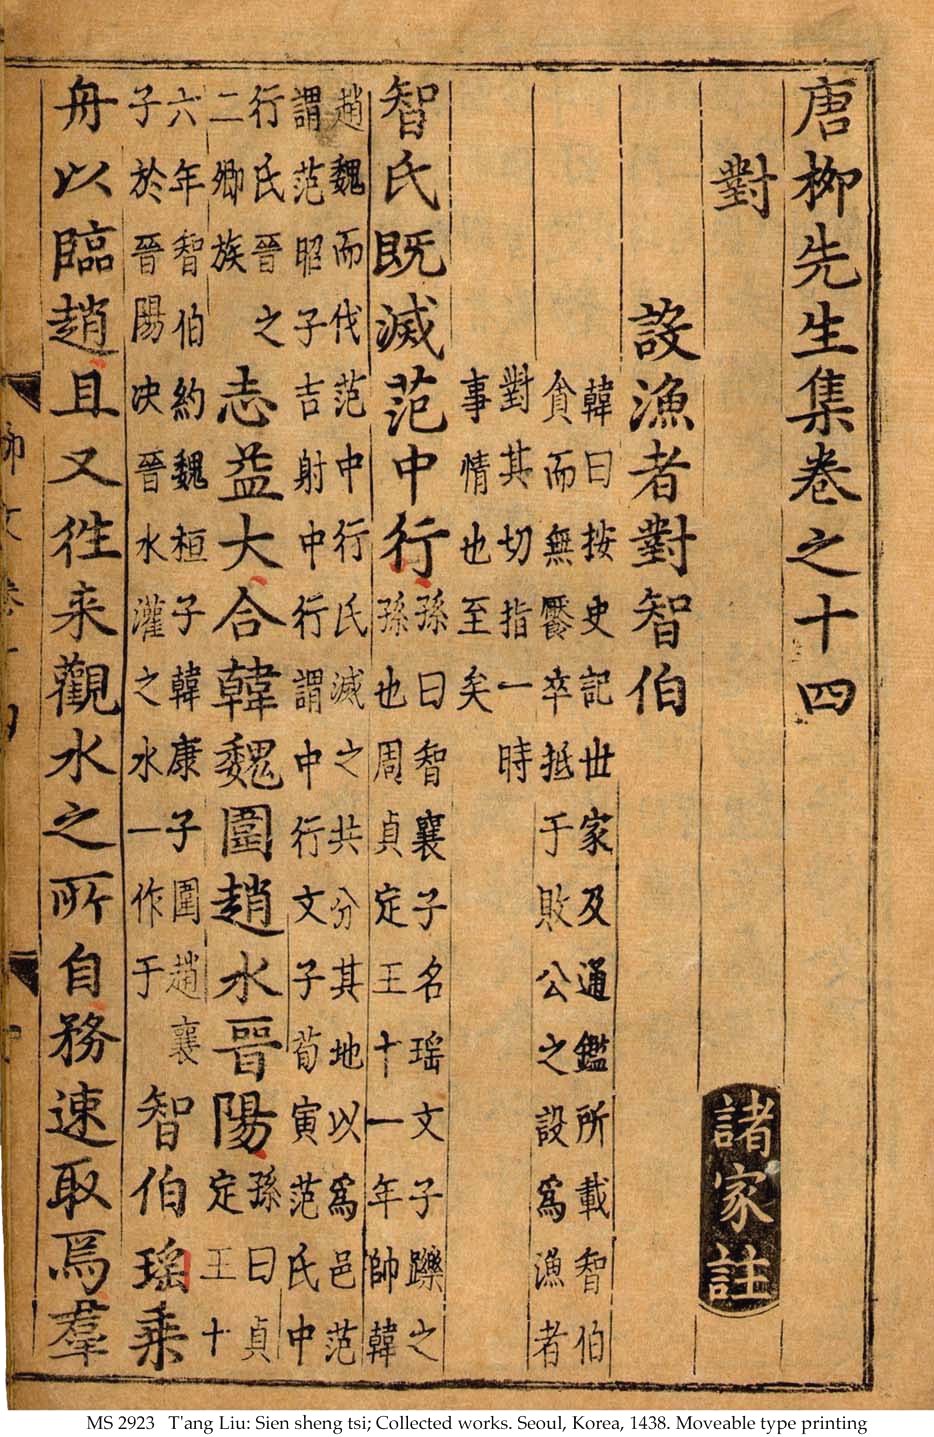 唐柳先生集卷之十四
對 諸家註
設漁者對智伯
韓曰按史記世家及通鑑所載智伯
貪而無饜卒抵于敗公之設爲漁者
對其切指一時
事情也至矣
智氏既滅范中行
孫曰智襄子名瑶文子躒之
孫也周貞定王十一年帥韓
趙魏而伐范中行氏滅之共分其地以爲邑范
謂范昭子吉射中行謂中行文子荀寅范氏中
行氏晉之
二卿族
志益大合韓魏圍趙水晉陽
孫曰貞
定王十
六年智伯約魏桓子韓康子圍趙襄
子於晉陽决晉水灌之水一作于
智伯瑶乗
舟以臨趙且又徃来觀水之所自務速取焉羣
MS 2923 T'ang Liu: Sien sheng tsi; Collected works. Seoul, Korea, 1438. Moveable type printing